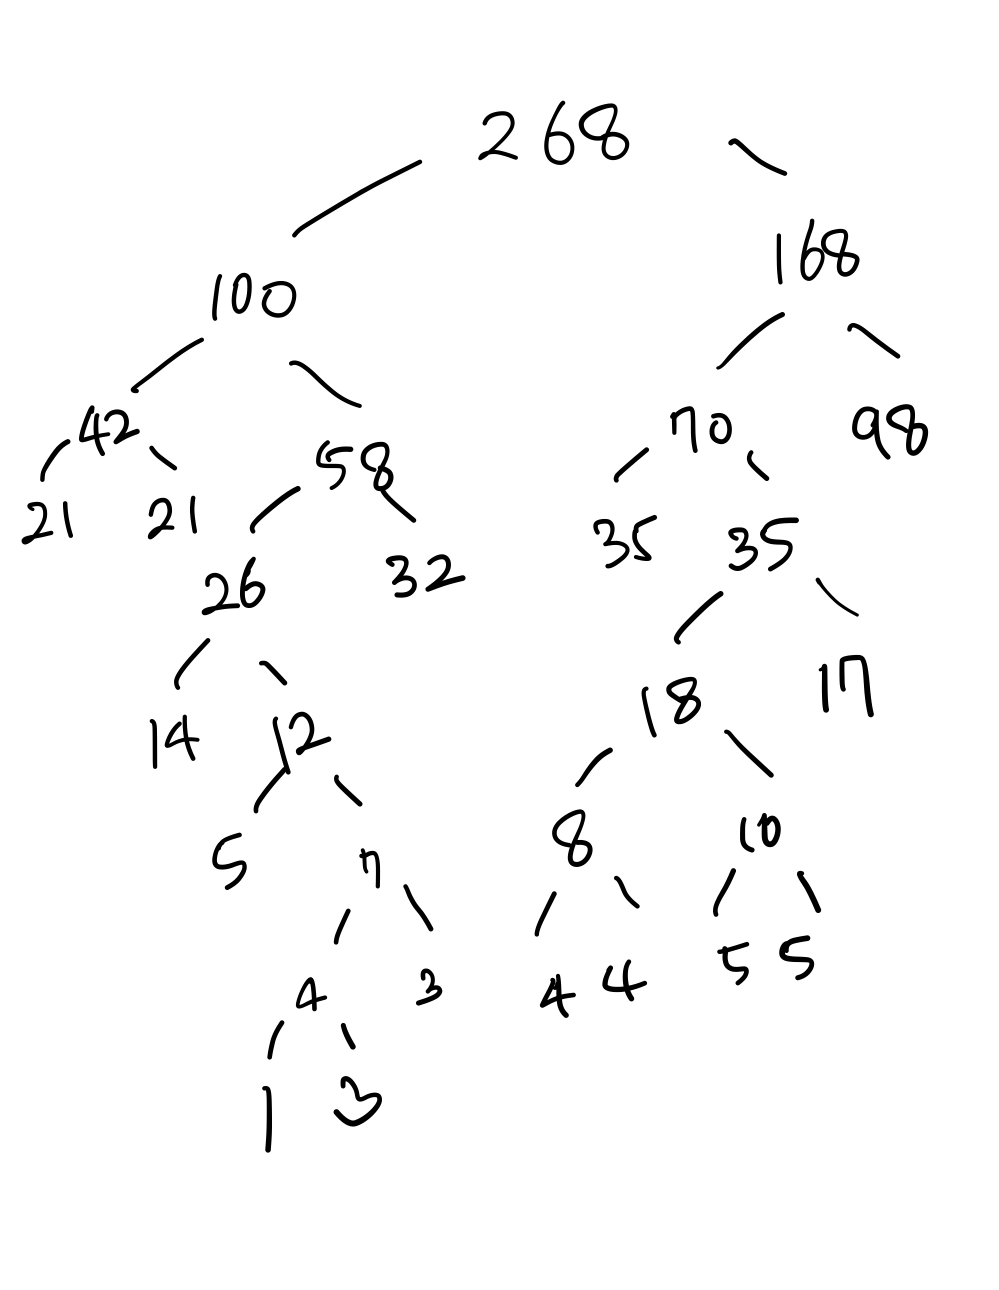 268
100 168
42 58 70 98
21 21 26 32 35 35
14 12 18 17
5 7 8 10
4 3 4 4 5 5
1 3